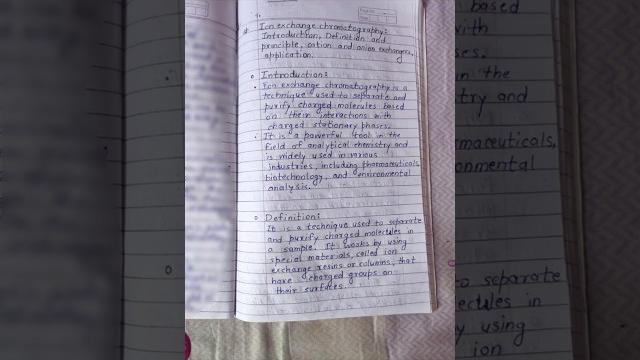 Ion exchange chromatography:
Introduction, Definition and
principle, cation and anion exchangers,
application.
Introduction:
Ion exchange chromatography is a
technique used to separate and
purify charged molecules based
on their interactions with
charged stationary phases.
It is a powerful tool in the
field of analytical chemistry and
is widely used in various
industries, including pharmaceuticals,
biotechnology, and environmental
analysis.
Definition:
It is a technique used to separate
and purify charged molecules in
a sample. It works by using
special materials, called ion
exchange resins or columns, that
have charged groups on
their surfaces.